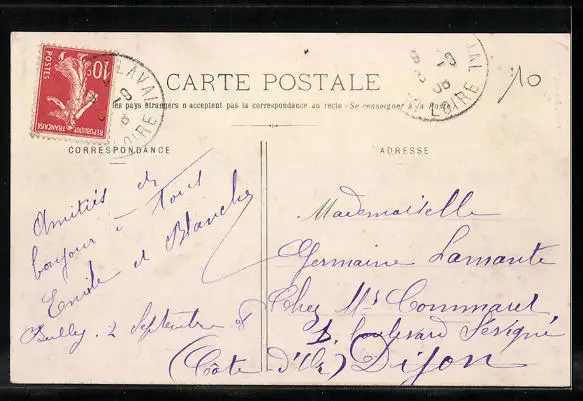 10c
POSTES
REPUBLIQUE FRANÇAISE
LAVAL
LOIRE
LOIRE
10
CARTE POSTALE
les pays étrangers n'acceptent pas la correspondance au recto - Se renseigner à la Poste
CORRESPONDANCE
Amitiés et
bonjour à tous
Emile et Blanche
2 Septembre 08
ADRESSE
Mademoiselle
Germaine Lamante
Chez Mr Commaret
boulevard Sévigné
Dijon
(Côte d'Or)